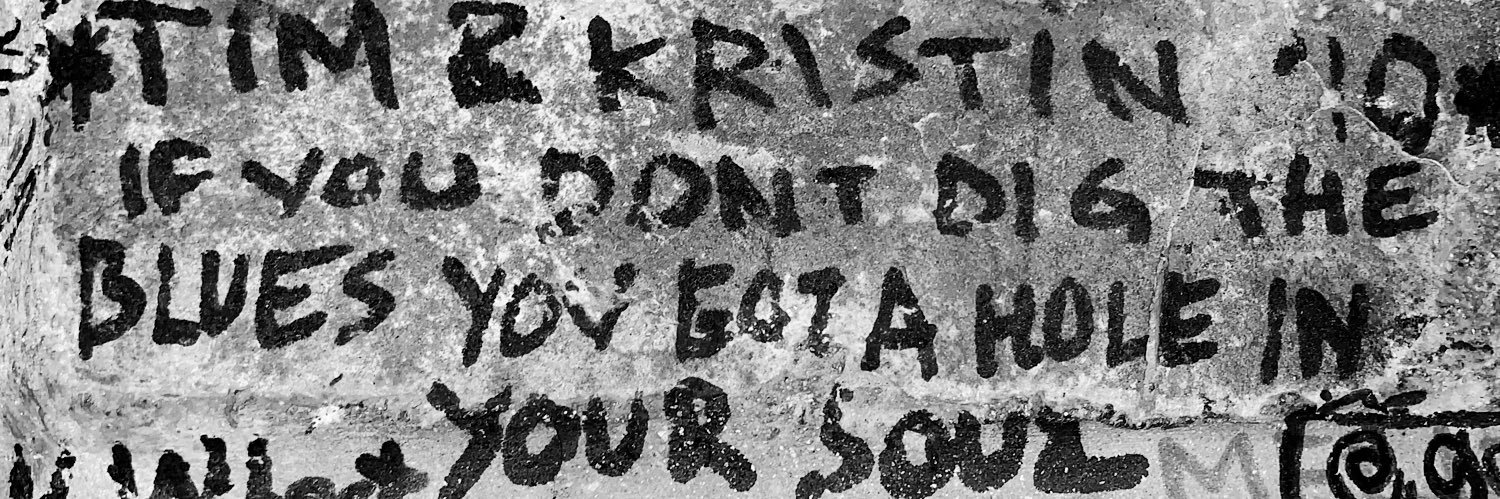 * TIM & KRISTIN '10 *
IF YOU DONT DIG THE
BLUES YOU GOT A HOLE IN
YOUR SOUL